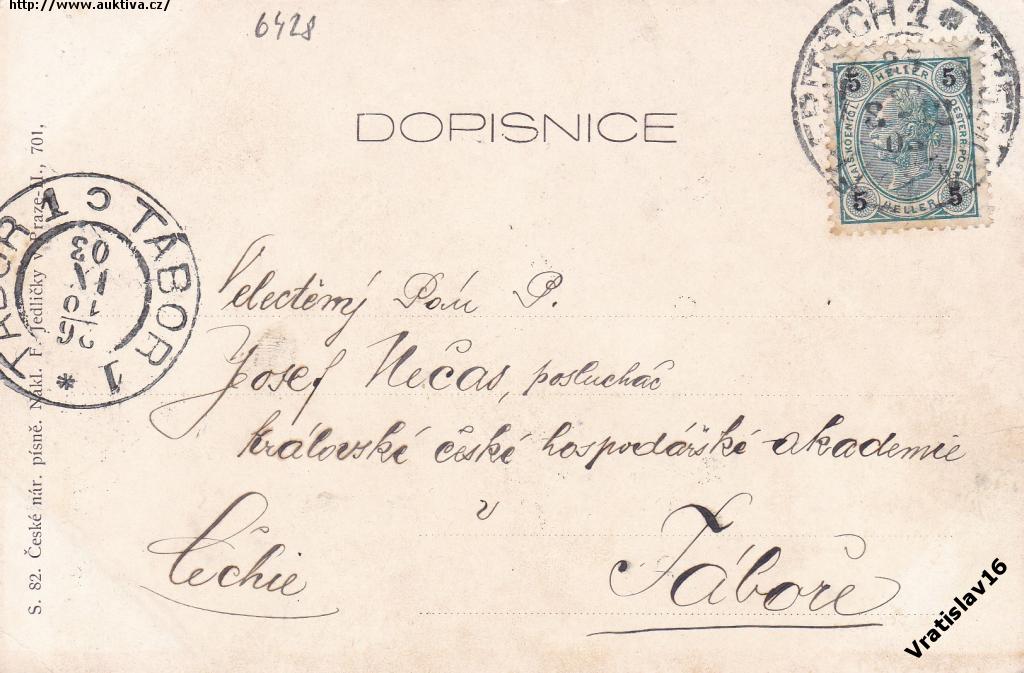 http://www.auktiva.cz/
6428
DOPISNICE
5 HELLER 5
KAIS. KOENIGL. OESTERR. POST
5 HELLER 5
TÁBOR 1 TÁBOR 1
26 10 03
Velectěný Pán P.
Josef Nečas, posluchač
královské české hospodářské akademie
v
Čechie
Táboře
S. 82. České nár. písně. Nákl. F. Jedličky v Praze-II., 701,
Vratislav16